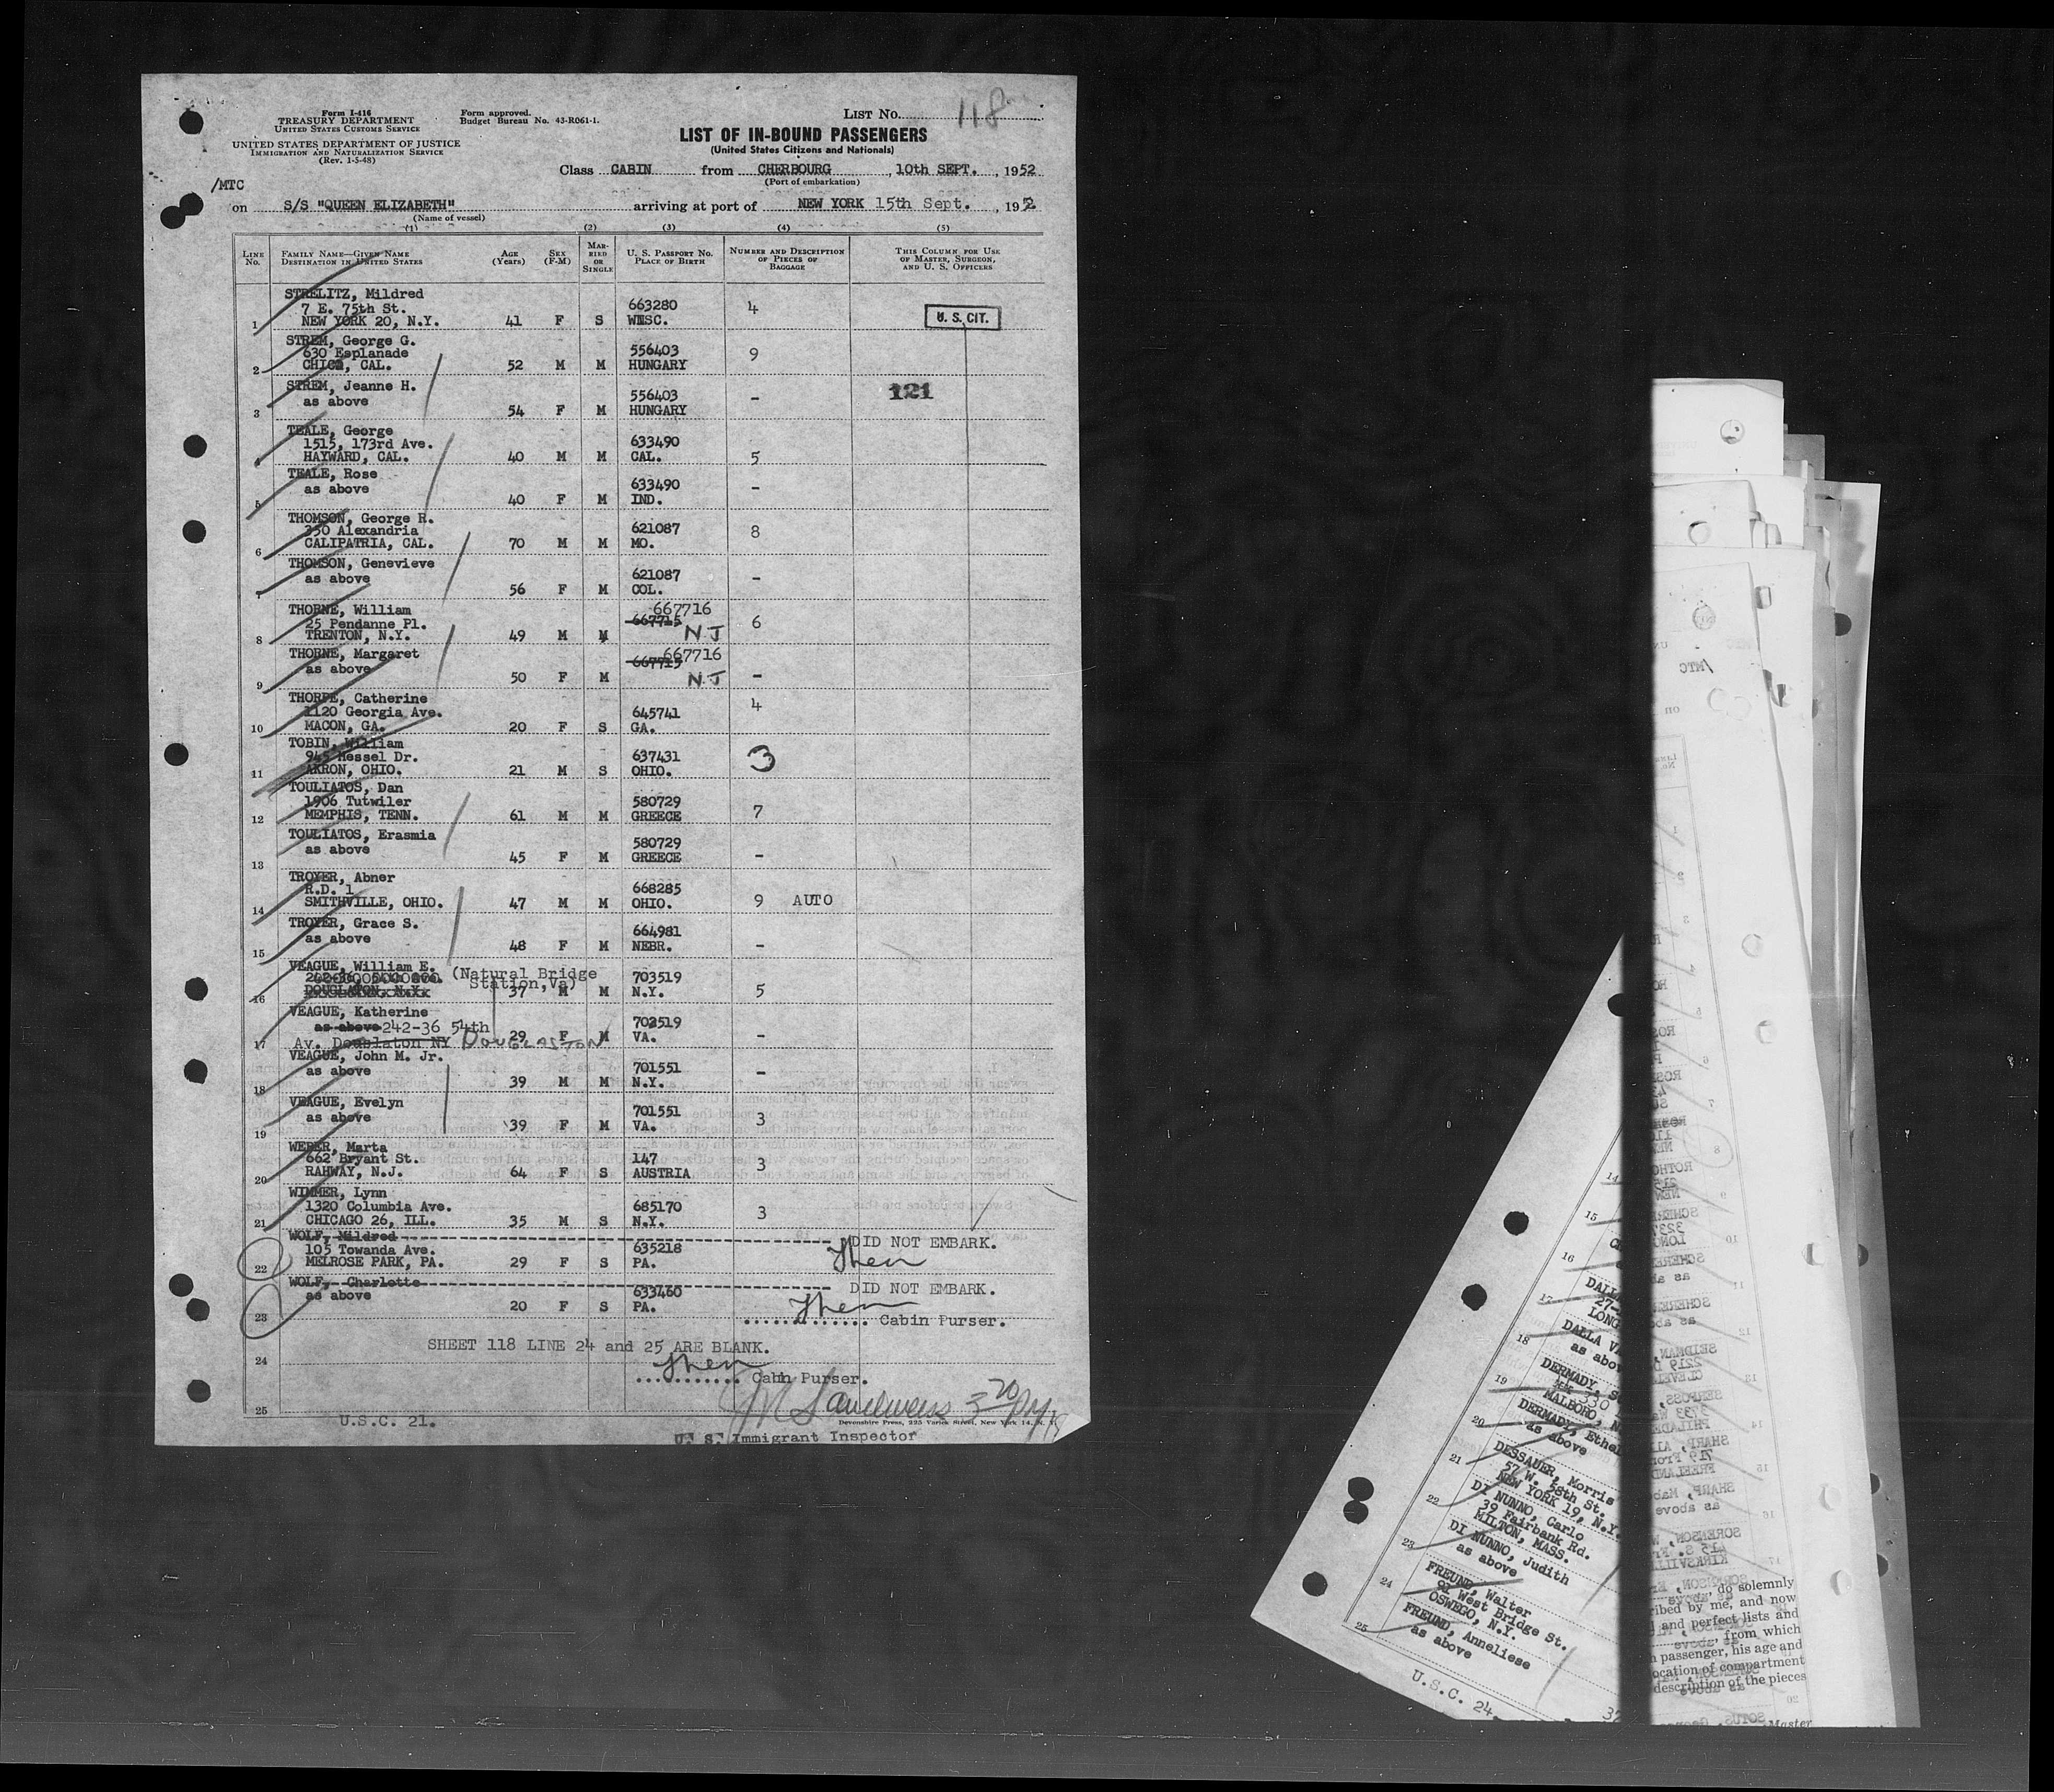 Form I-416
TREASURY DEPARTMENT
UNITED STATES CUSTOMS SERVICE
UNITED STATES DEPARTMENT OF JUSTICE
IMMIGRATION AND NATURALIZATION SERVICE
(Rev. 1-5-48)
Form approved.
Budget Bureau No. 43-R061-1.
LIST No. 118
LIST OF IN-BOUND PASSENGERS
(United States Citizens and Nationals)
Class CABIN from CHERBOURG, 10th SEPT., 1952
(Port of embarkation)
/MTC
on S/S "QUEEN ELIZABETH" arriving at port of NEW YORK 15th Sept., 192
(Name of vessel)
(1) (2) (3) (4) (5)
LINE No. FAMILY NAME—GIVEN NAME DESTINATION IN UNITED STATES AGE (Years) SEX (F-M) MARRIED OR SINGLE U. S. PASSPORT No. PLACE OF BIRTH NUMBER AND DESCRIPTION OF PIECES OF BAGGAGE THIS COLUMN FOR USE OF MASTER, SURGEON, AND U. S. OFFICERS
STRELITZ, Mildred
7 E. 75th St. 663280 4
1 NEW YORK 20, N.Y. 41 F S WISC. U. S. CIT.
STREM, George G.
630 Esplanade 556403 9
2 CHICO, CAL. 52 M M HUNGARY
STREM, Jeanne H.
as above 556403 - 121
3 54 F M HUNGARY
TEALE, George
1515, 173rd Ave. 633490
4 HAYWARD, CAL. 40 M M CAL. 5
TEALE, Rose
as above 633490 -
5 40 F M IND.
THOMSON, George R.
350 Alexandria 621087 8
6 CALIPATRIA, CAL. 70 M M MO.
THOMSON, Genevieve
as above 621087 -
7 56 F M COL.
THORNE, William 667716
25 Pendanne Pl. 667715 6
8 TRENTON, N.Y. 49 M M N J
THORNE, Margaret 667716
as above 667715
9 50 F M N J -
THORPE, Catherine 4
1120 Georgia Ave. 645741
10 MACON, GA. 20 F S GA.
TOBIN, William
945 Hessel Dr. 637431 3
11 AKRON, OHIO. 21 M S OHIO.
TOULIATOS, Dan
1906 Tutwiler 580729 7
12 MEMPHIS, TENN. 61 M M GREECE
TOULIATOS, Erasmia
as above 580729
13 45 F M GREECE -
TROYER, Abner
R.D. 1 668285
14 SMITHVILLE, OHIO. 47 M M OHIO. 9 AUTO
TROYER, Grace S.
as above 664981
15 48 F M NEBR. -
VEAGUE, William E. (Natural Bridge
Station,Va) 703519
16 DOUGLATON, N.Y. 37 M M N.Y. 5
VEAGUE, Katherine
as above 242-36 54th 703519
17 Av. Douglaton NY DOUGLASTON 29 F M VA. -
VEAGUE, John M. Jr.
as above 701551 -
18 39 M M N.Y.
VEAGUE, Evelyn
as above 701551 3
19 39 F M VA.
WEBER, Marta
662 Bryant St. 147 3
20 RAHWAY, N.J. 64 F S AUSTRIA
WIMMER, Lynn
1320 Columbia Ave. 685170 3
21 CHICAGO 26, ILL. 35 M S N.Y.
WOLF, Mildred DID NOT EMBARK.
105 Towanda Ave. 635218
22 MELROSE PARK, PA. 29 F S PA.
WOLF, Charlotte DID NOT EMBARK.
as above 633460
23 20 F S PA.
Cabin Purser.
SHEET 118 LINE 24 and 25 ARE BLANK.
24
Cabin Purser.
25
U.S.C. 21.
Devonshire Press, 225 Varick Street, New York 14, N. Y.
U. S. Immigrant Inspector
14
15
16
17
27-
18 DALLA
as above
19 DERMADY,
330
MALBORO,
20 DERMADY, Ethel
as above
21 DESSAUER, Morris
57 W. 58th St.
NEW YORK 19, N.Y.
22 DI NUNNO, Carlo
39 Fairbank Rd.
MILTON, MASS.
23 DI NUNNO, Judith
as above
24 FREUND, Walter
91 West Bridge St.
OSWEGO, N.Y.
25 FREUND, Anneliese
as above
U.S.C. 24.
do solemnly
ribed by me, and now
and perfect lists and
from which
passenger, his age and
ocation of compartment
description of the pieces
Master